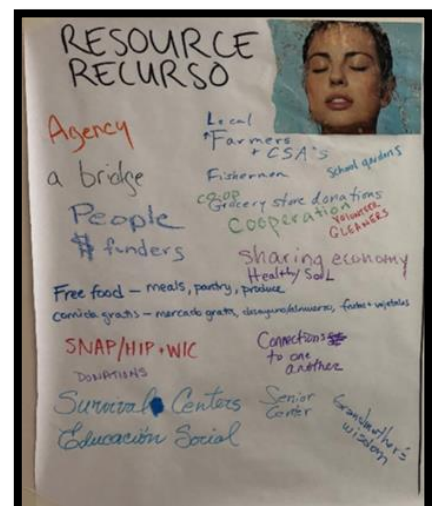 RESOURCE
RECURSO
Agency
a bridge
People
$ funders
Local
Farmers
+ CSA's
Fishermen
School gardens
CO-OP
Grocery store donations
Cooperation
VOLUNTEER
GLEANERS
Sharing economy
Healthy Soil
Free food – meals, pantry, produce
comida gratis – mercado gratis, desayuno/almuerzo, frutas + vejetales
SNAP/HIP + WIC
DONATIONS
Connections
to one
another
Survival Centers
Educación Social
Senior
Center
Grandmother's
wisdom